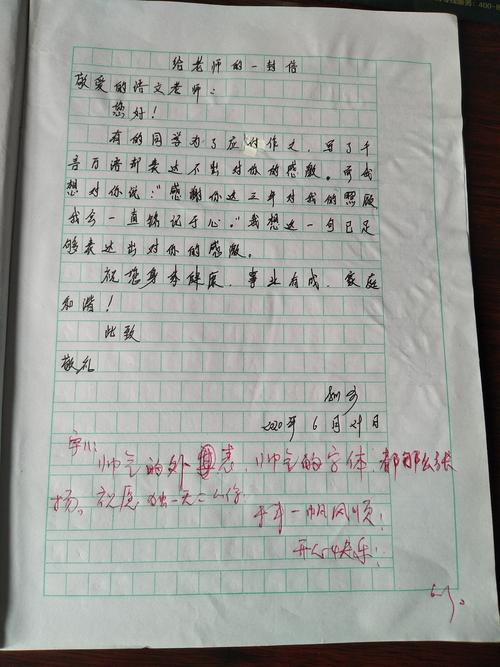 给老师的一封信
敬爱的语文老师：
您好！
有的同学为了应付作文，写了千
言万语却表达不出对你的感激。而我
想对你说："感谢你这三年对我的照顾
我会一直铭记于心。"我想这一句已足
够表达出对你的感激。
祝您身体健康，事业有成，家庭
和谐！
此致
敬礼
2020年6月29日
帅气的外表，帅气的字体，都那么张
扬。祝愿独一无二的你
千年一帆风顺！
开心快乐！